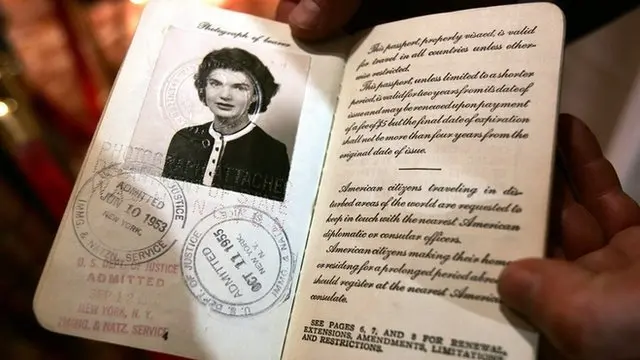 Photograph of bearer
PHOTOGRAPH ATTACHED
DEPARTMENT OF STATE
ADMITTED
JUN 10 1953
NEW YORK.
IMMG. & NATZ. SERVICE
JUSTICE
U. S. DEPT. OF JUSTICE
ADMITTED
OCT 11 1955
NEW YORK, N.Y.
U. S. DEPT. OF JUSTICE
ADMITTED
SEP 12
NEW YORK, N.Y.
IMMIG. & NATZ. SERVICE
4
This passport, properly visaed, is valid
for travel in all countries unless other-
wise restricted.
This passport, unless limited to a shorter
period, is valid for two years from its date of
issue and may be renewed upon payment
of a fee of $5 but the final date of expiration
shall not be more than four years from the
original date of issue.
American citizens traveling in dis-
turbed areas of the world are requested to
keep in touch with the nearest American
diplomatic or consular officers.
American citizens making their home
or residing for a prolonged period abroad
should register at the nearest American
consulate.
SEE PAGES 6, 7, AND 8 FOR RENEWAL,
EXTENSIONS, AMENDMENTS, LIMITATIONS
AND RESTRICTIONS.